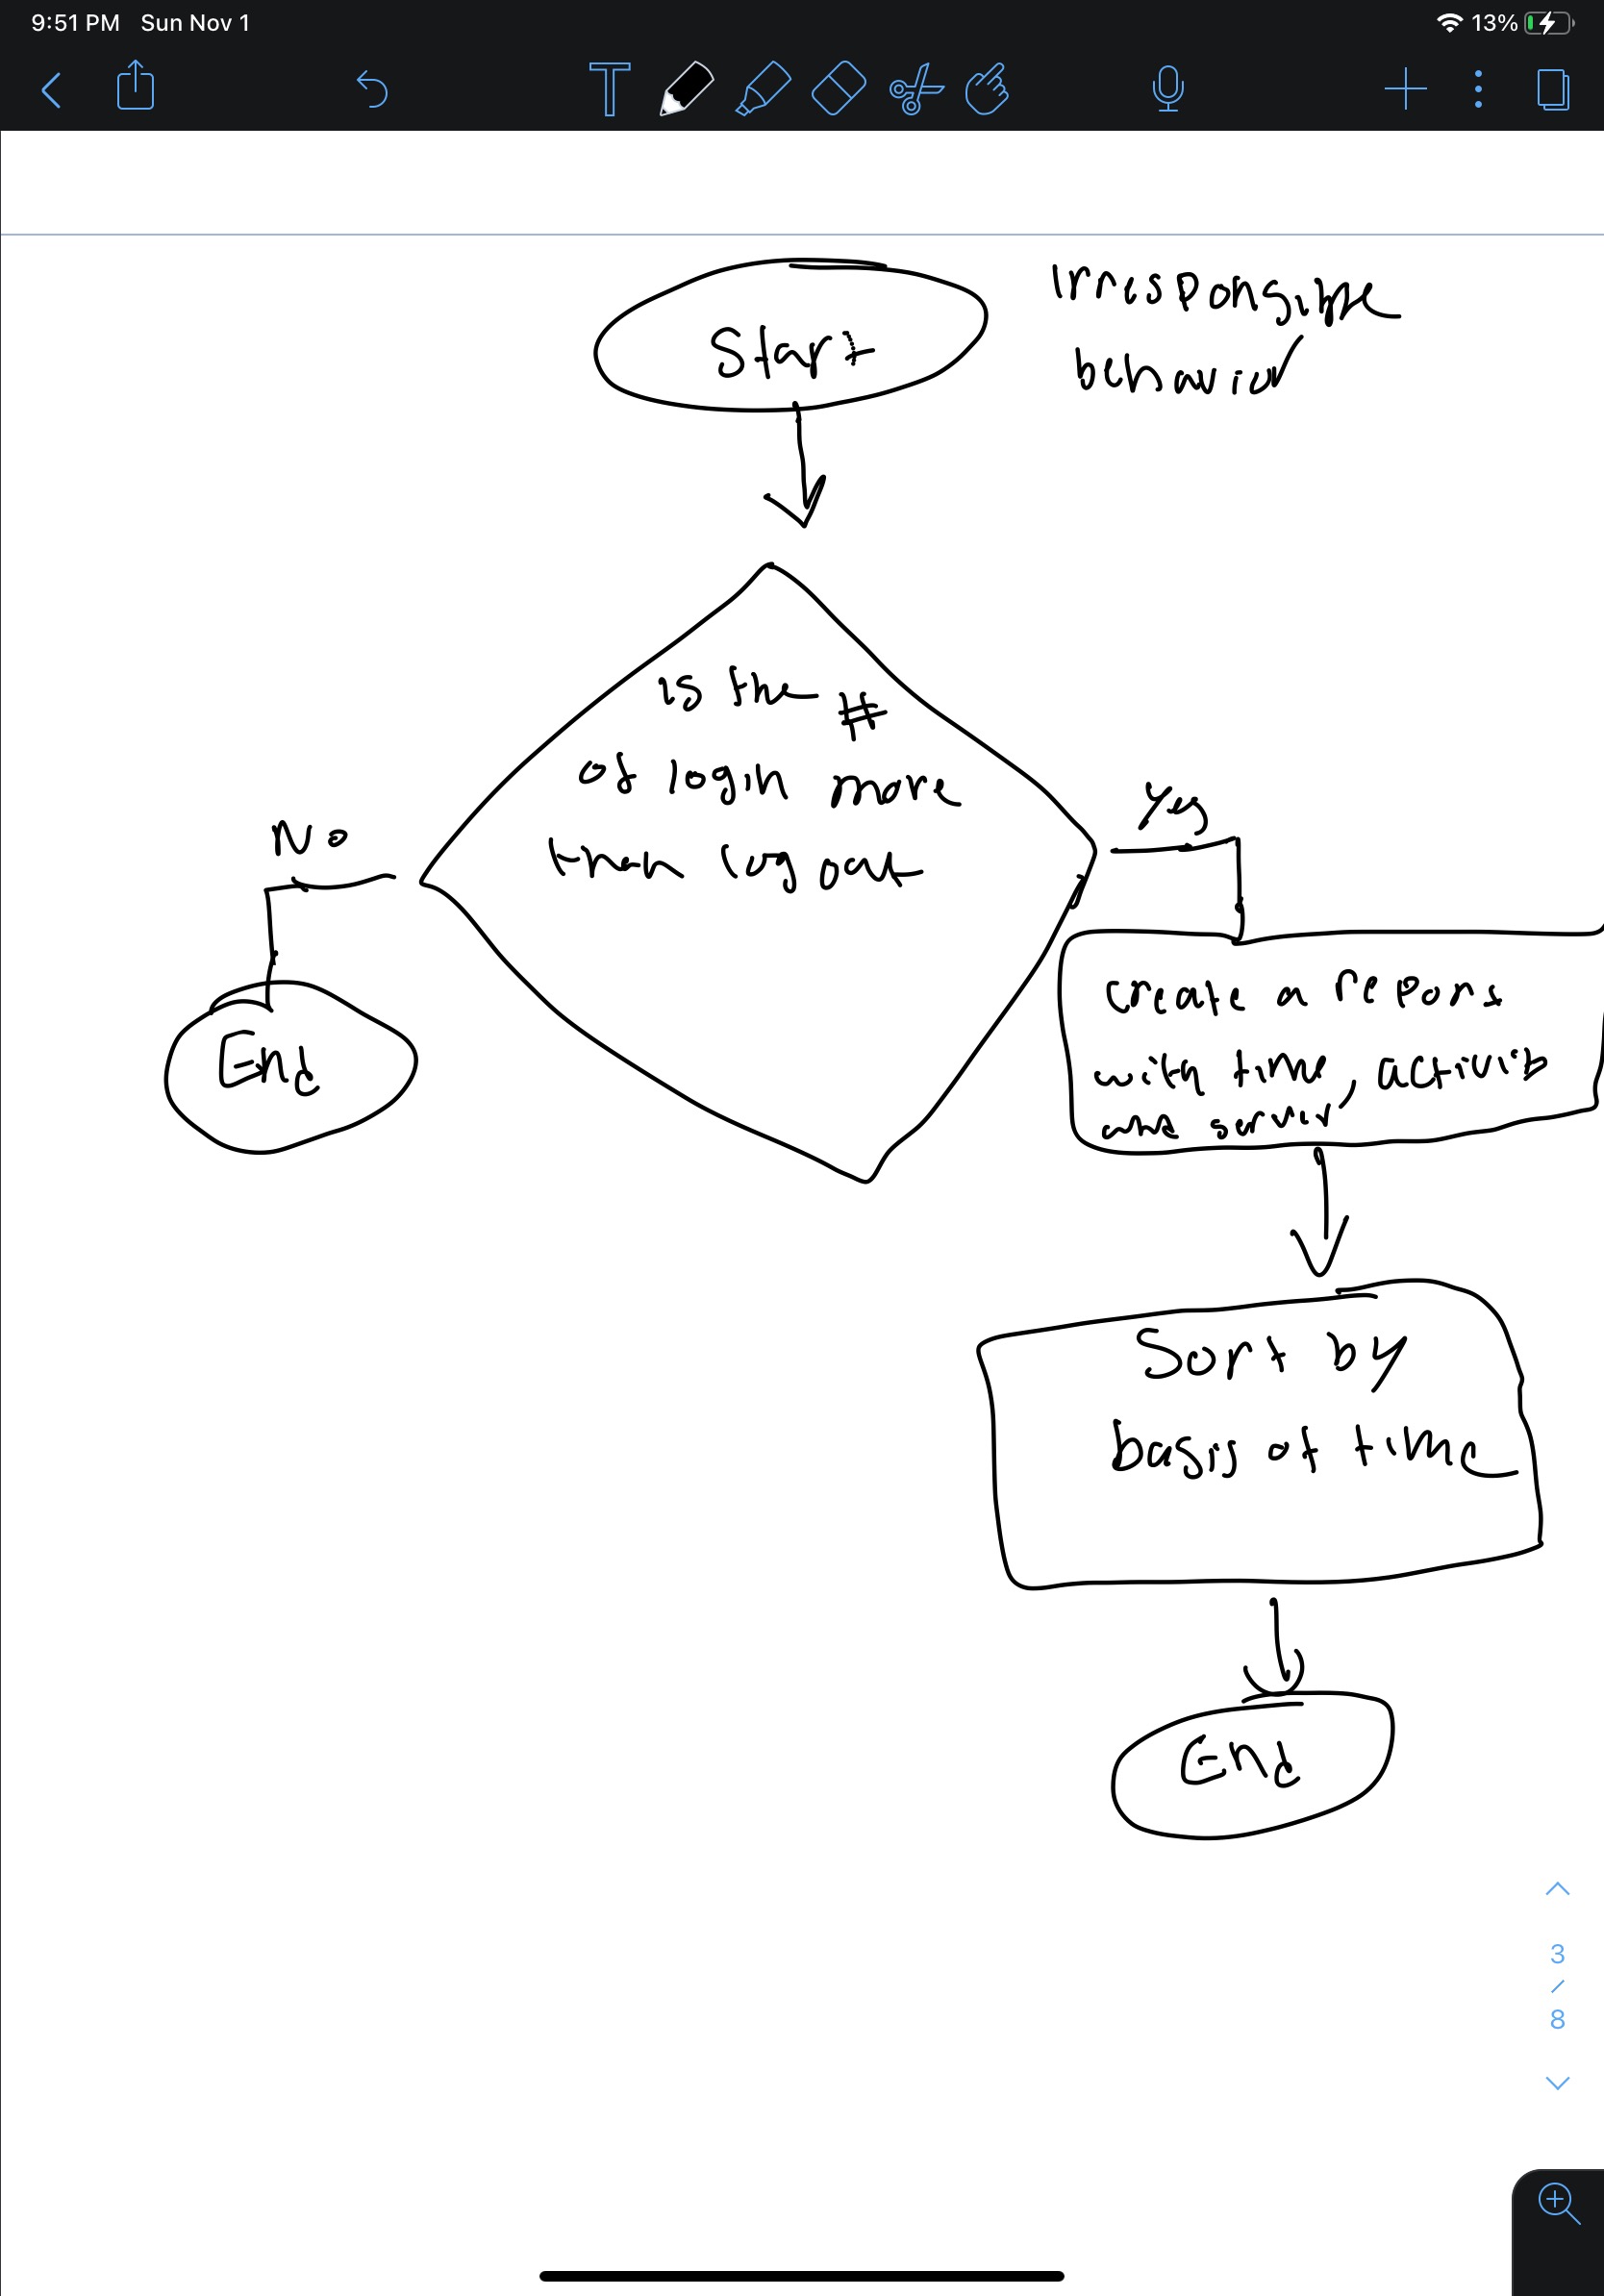 9:51 PM Sun Nov 1
13%
T
Start
irresponsible
behavior
is the #
of login more
than logout
No
Yes
End
create a report
with time, activity
and server
Sort by
basis of time
End
3
/
8